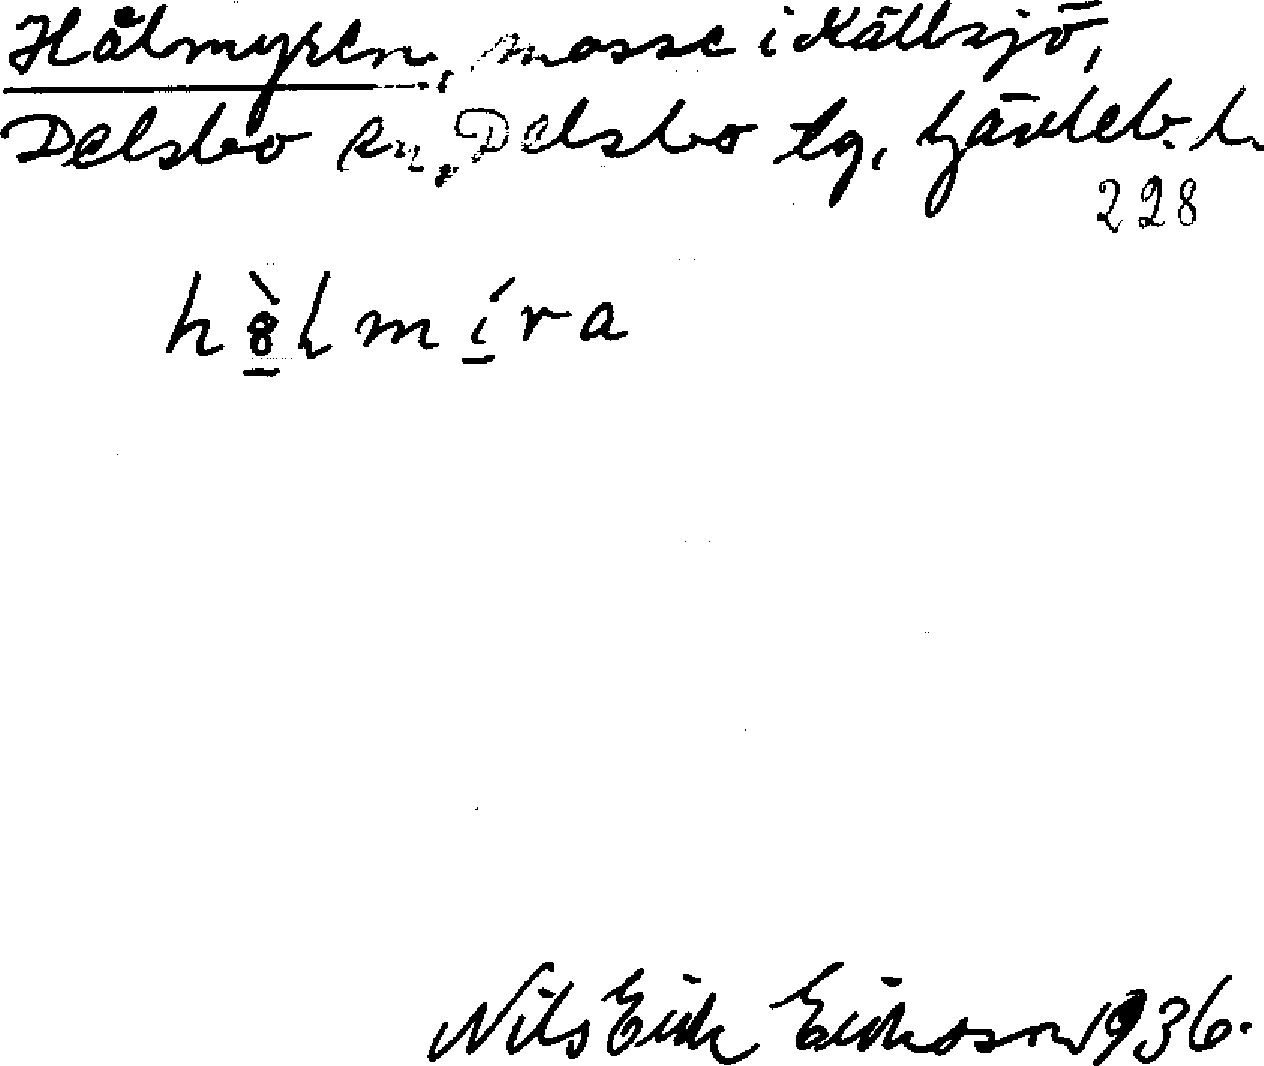 Hålmyren, mosse i Källsjö,
Delsbo sn, Delsbo tg, Gävleb. l.
228
ho᷅lmíra
Nils Erik Eriksson 1936.